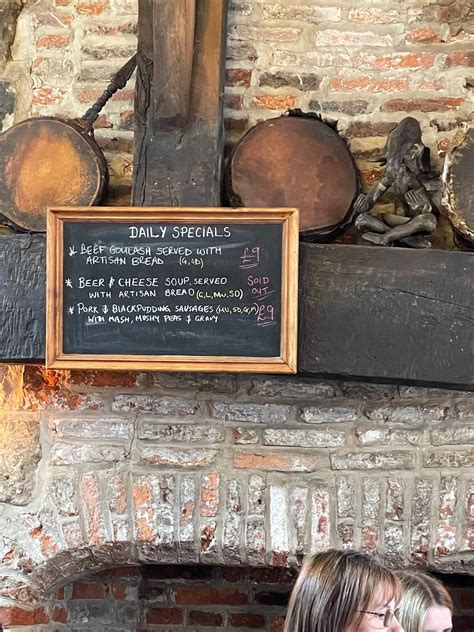 DAILY SPECIALS
* BEEF GOULASH SERVED WITH £9
ARTISAN BREAD (G, SD)
* BEER & CHEESE SOUP, SERVED SOLD
WITH ARTISAN BREAD (G, L, MU, SD) OUT
* PORK & BLACKPUDDING SAUSAGES (MU, SD, G, M) £9
WITH MASH, MUSHY PEAS & GRAVY